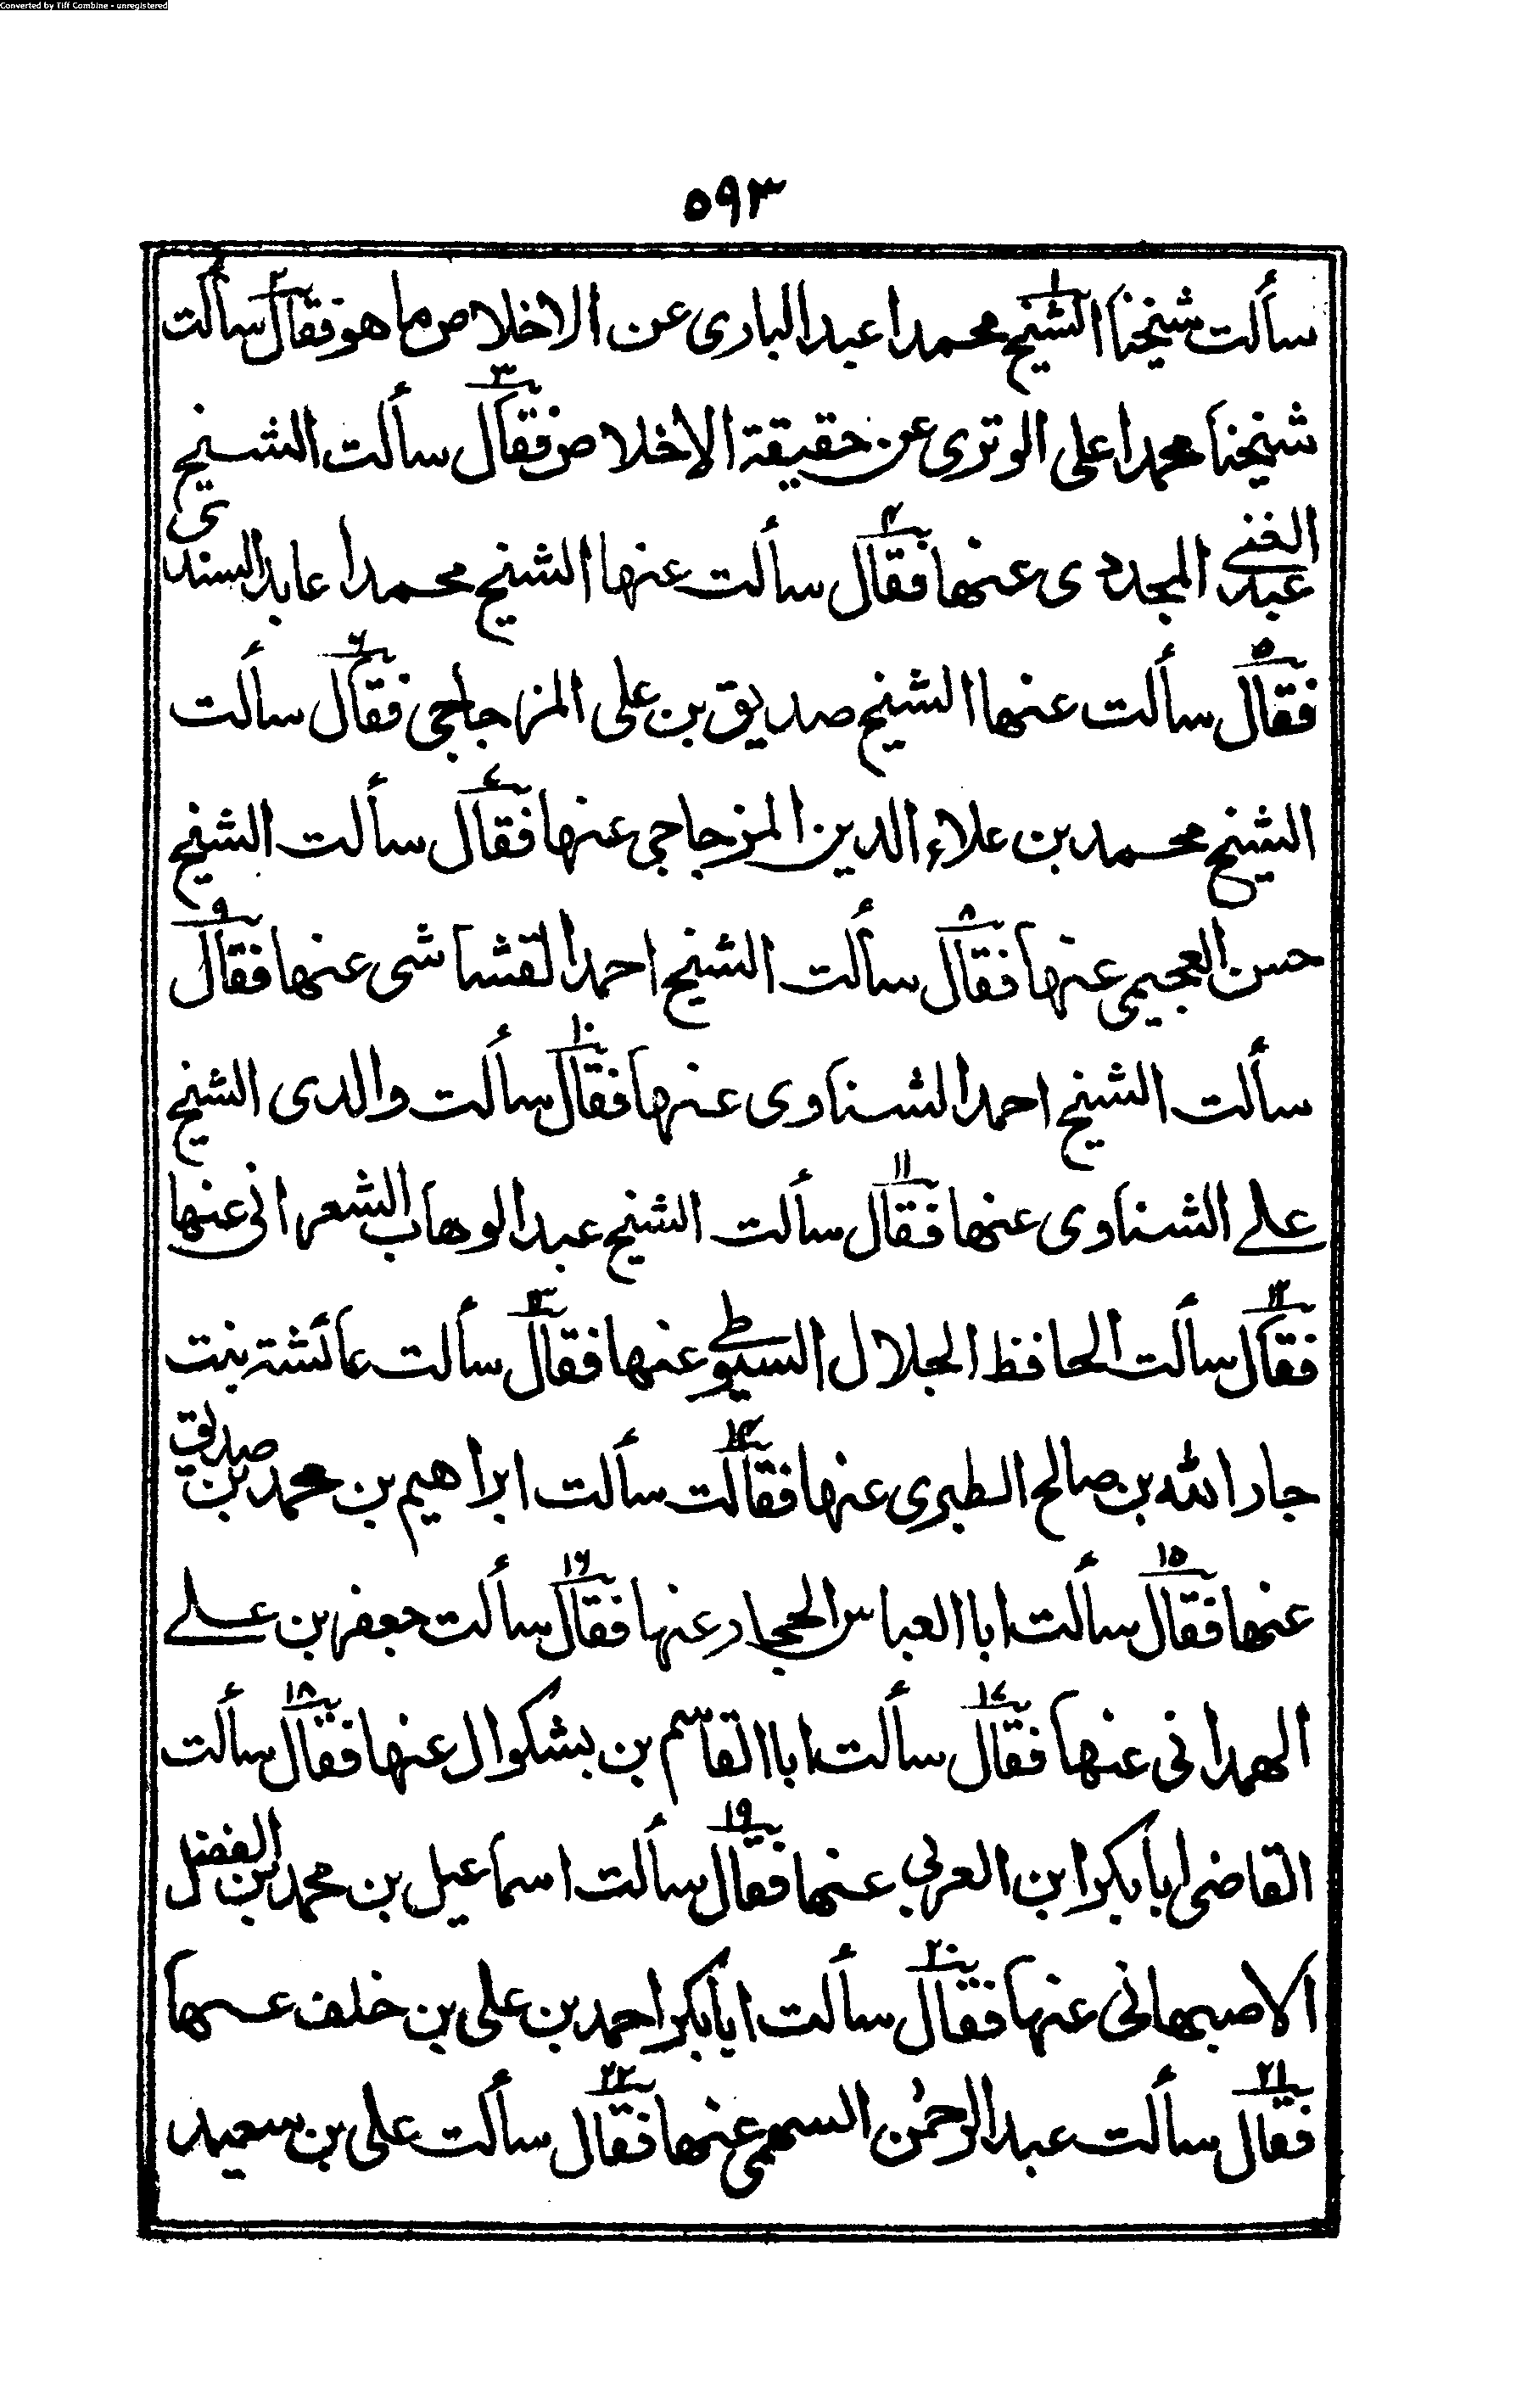 Converted by Tiff Combine - unregistered
٥٩٣
سألت شيخنا الشيخ محمدا عبد الباري عن الاخلاص ما هو فقال سألت
شيخنا محمدا علي الوتري عن حقيقة الإخلاص فقال سألت الشيخ
عبد الغني المجددي عنها فقال سألت عنها الشيخ محمدا عابد السندي
فقال سألت عنها الشيخ صديق بن علي المزجاجي فقال سألت
الشيخ محمد بن علاء الدين المزجاجي عنها فقال سألت الشيخ
حسن العجيمي عنها فقال سألت الشيخ احمد القشاشي عنها فقال
سألت الشيخ احمد الشناوي عنها فقال سألت والدي الشيخ
علي الشناوي عنها فقال سألت الشيخ عبد الوهاب الشعراني عنها
فقال سألت الحافظ الجلال السيوطي عنها فقال سألت عائشة بنت
جار الله بن صالح الطبري عنها فقالت سألت ابراهيم بن محمد بن صديق
عنها فقال سألت ابا العباس الحجار عنها فقال سألت جعفر بن علي
الهمداني عنها فقال سألت ابا القاسم بن بشكوال عنها فقال سألت
القاضي ابا بكر ابن العربي عنها فقال سألت اسماعيل بن محمد بن الفضل
الاصبهاني عنها فقال سألت ابا بكر احمد بن علي بن خلف عنها
فقال سألت عبد الرحمٰن السهمي عنها فقال سألت علي بن سعيد
١
٢
٣
٤
٥
٦
٧
٨
٩
١٠
١١
١٢
١٣
١٤
١٥
١٦
١٧
١٨
١٩
٢٠
٢١
٢٢